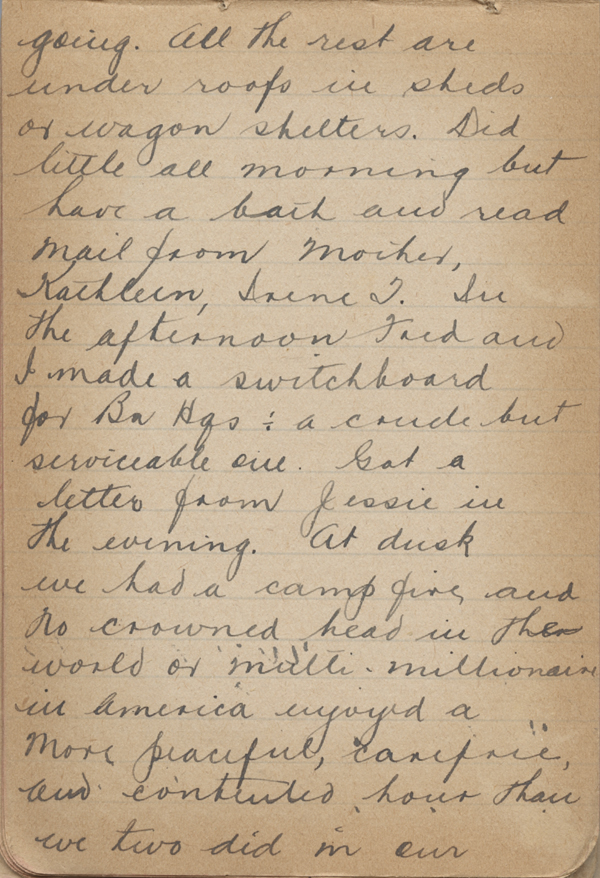 going. All the rest are
under roofs in sheds
or wagon shelters. Did
little all morning but
have a bath and read
mail from Mother,
Kathleen, Irene T. In
the afternoon Fred and
I made a switchboard
for Bn Hqs : a crude but
serviceable one. Got a
letter from Jessie in
the evening. At dusk
we had a camp fire, and
no crowned head in the
world or multi-millionaire
in America enjoyed a
more peaceful, carefree,
and contented hour than
we two did in our